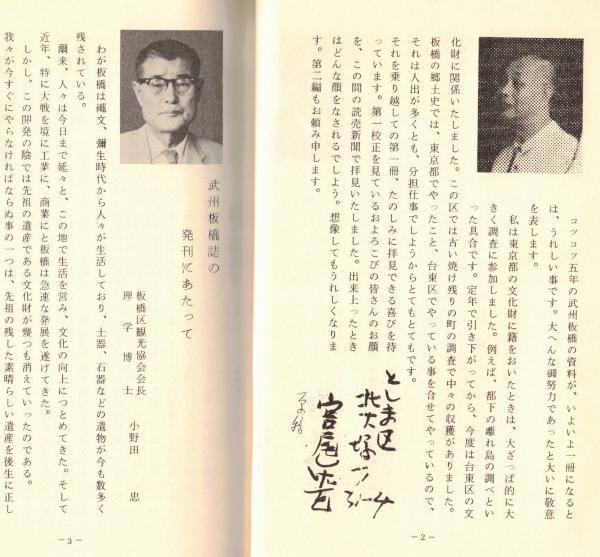 コツコツ五年の武州板橋の資料が、いよいよ一冊になると
は、うれしい事です。大へんな御努力であったと大いに敬意
を表します。
私は東京都の文化財に籍をおいたときは、大ざっぱ的に大
きく調査に参加しました。例えば、都下の離れ島の調べとい
った具合です。定年で引き下がってから、今度は台東区の文
化財に関係いたしました。この区では古い焼け残りの町の調査で中々の収獲がありました。
板橋の郷土史では、東京都でやったこと、台東区でやっている事を合せてやっているので、
それは人出が多くとも、分担仕事でしようからとてもとてもです。
それを乗り越しての第一冊、たのしみに拝見できる喜びを待
っています。第一校正を見ているおよろこびの皆さんのお顔
を、この間の読売新聞で拝見いたしました。出来上ったとき
はどんな顔をなされるでしよう。想像してもうれしくなりま
す。第二編もお頼み申します。
としま区
－2－
武州板橋誌の
発刊にあたって
板橋区観光協会会長
理学博士
小野田　忠
わが板橋は縄文、彌生時代から人々が生活しており、土器、石器などの遺物が今も数多く
残されている。
爾来、人々は今日まで延々と、この地で生活を営み、文化の向上につとめてきた。そして
近年、特に大戦を境に工業に、商業にと板橋は急速な発展を遂げてきた。
しかし、この開発の陰では先祖の遺産である文化財が幾つも消えていったのである。
我々が今すぐにやらなければならぬ事の一つは、先祖の残した素晴らしい遺産を後生に正し
－3－